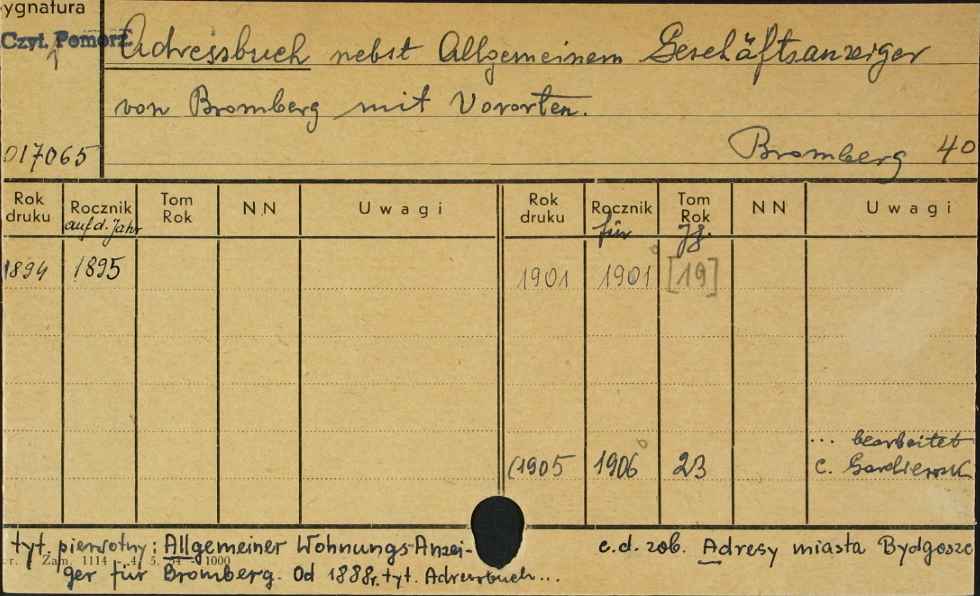 ygnatura
Czyt. Pomorz.
Adressbuch nebst Allgemeinem Geschäftsanzeiger
von Bromberg mit Vororten.
017065
Bromberg 40
Rok druku Rocznik auf d. Jahr Tom Rok NN Uwagi Rok druku Rocznik für Tom Rok Jg. NN Uwagi
1894 1895 1901 1901 [19]
... bearbeitet
(1905 1906 23 C.
tyt. pierwotny: Allgemeiner Wohnungs-Anzei- c.d. zob. Adresy miasta Bydgoszc
r. Zam. 1114 - 4. 5. 54 - 1000
ger für Bromberg. Od 1888r. tyt. Adressbuch...